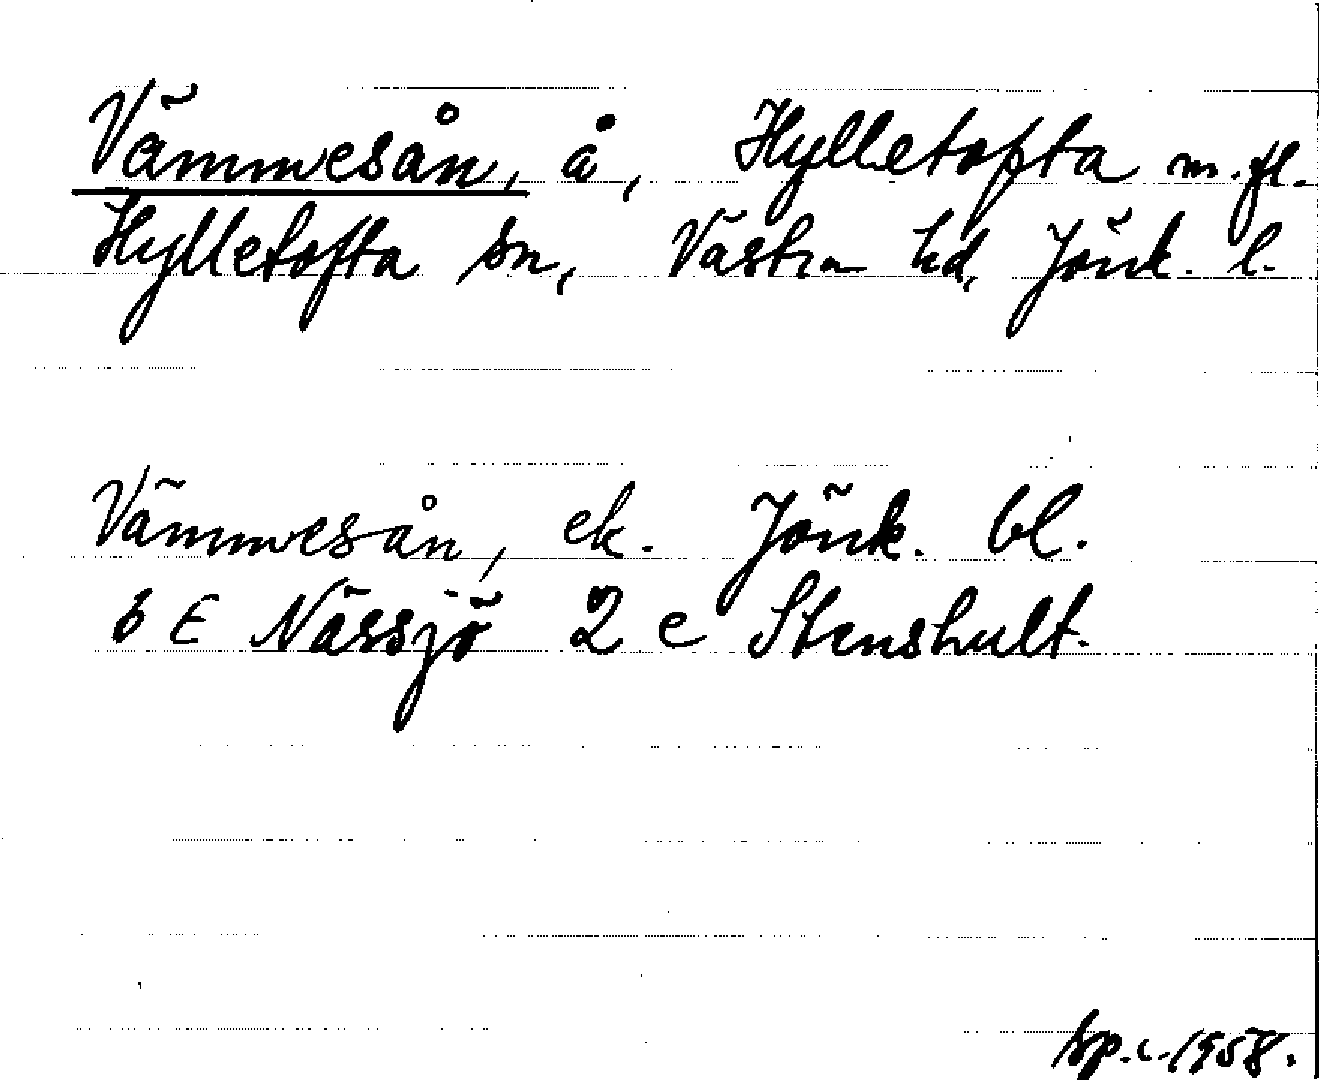 Vämmesån, å, Hylletofta m.fl.
Hylletofta sn, Västra hd, Jönk. l.
Vämmesån, ek. Jönk. bl.
6 E Nässjö 2 e Stenshult.
sp.c.1958.